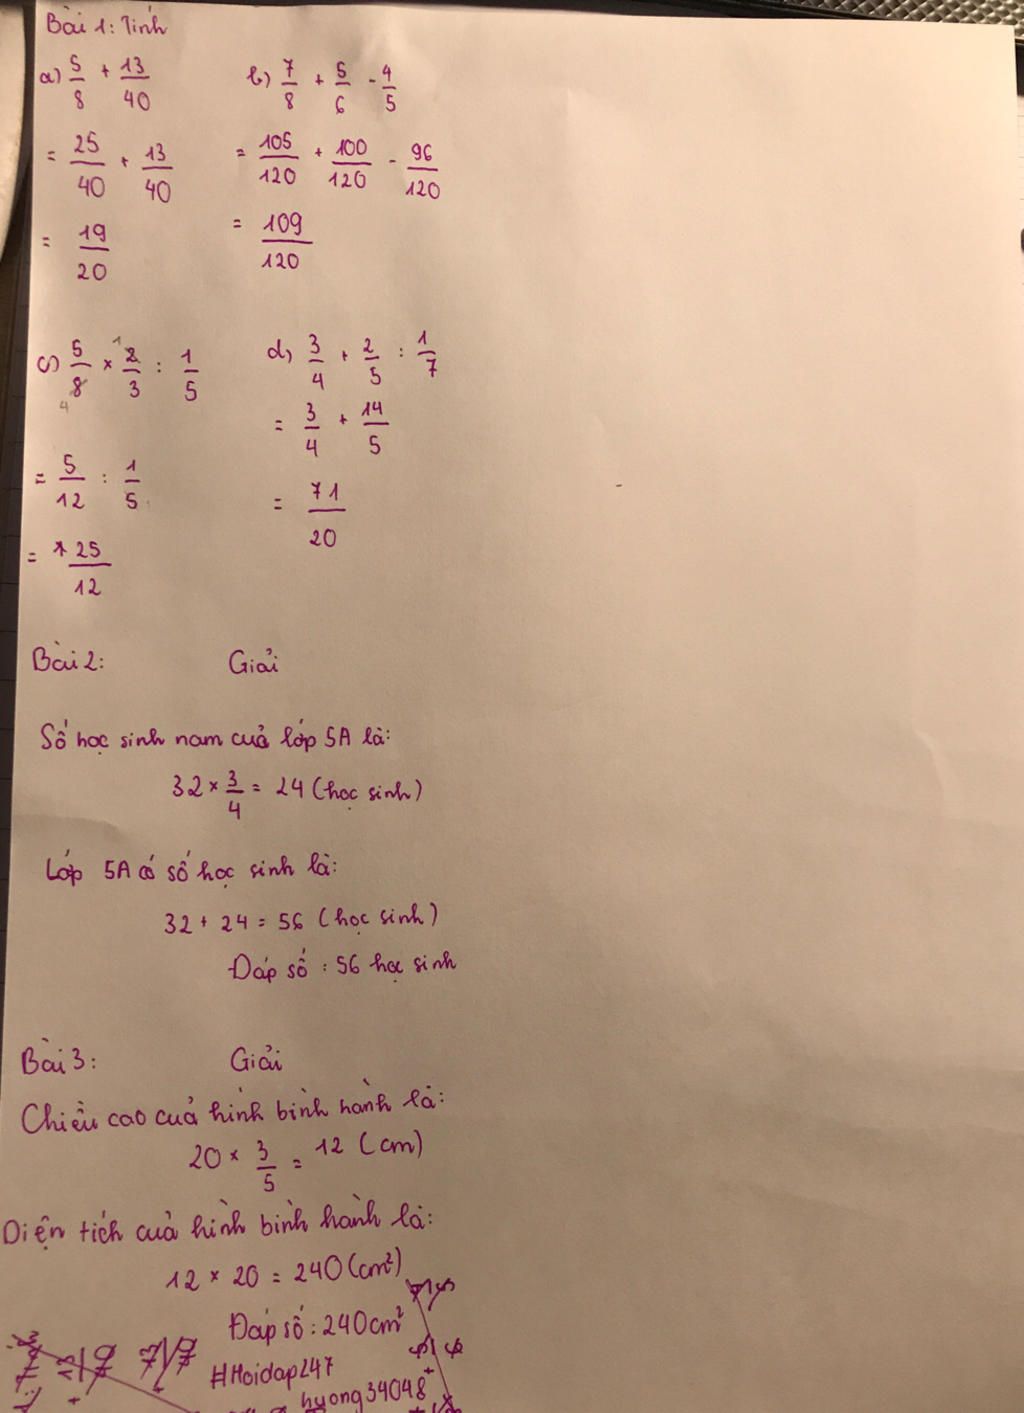 Bài 1: Tính
a) 5/8 + 13/40
= 25/40 + 13/40
= 19/20
b) 7/8 + 5/6 - 4/5
= 105/120 + 100/120 - 96/120
= 109/120
c) 5/8 × 2/3 : 1/5
1
4
= 5/12 : 1/5
= 25/12
d) 3/4 + 2/5 : 1/7
= 3/4 + 14/5
= 71/20
Bài 2: Giải
Số học sinh nam cuả lớp 5A là:
32 × 3/4 = 24 (học sinh)
Lớp 5A có số học sinh là:
32 + 24 = 56 (học sinh)
Đáp số : 56 học sinh
Bài 3: Giải
Chiều cao cuả hình bình hành là:
20 × 3/5 = 12 (cm)
Diện tích cuả hình bình hành là:
12 × 20 = 240 (cm²)
Đáp số : 240cm²
#Hoidap247
huong34048